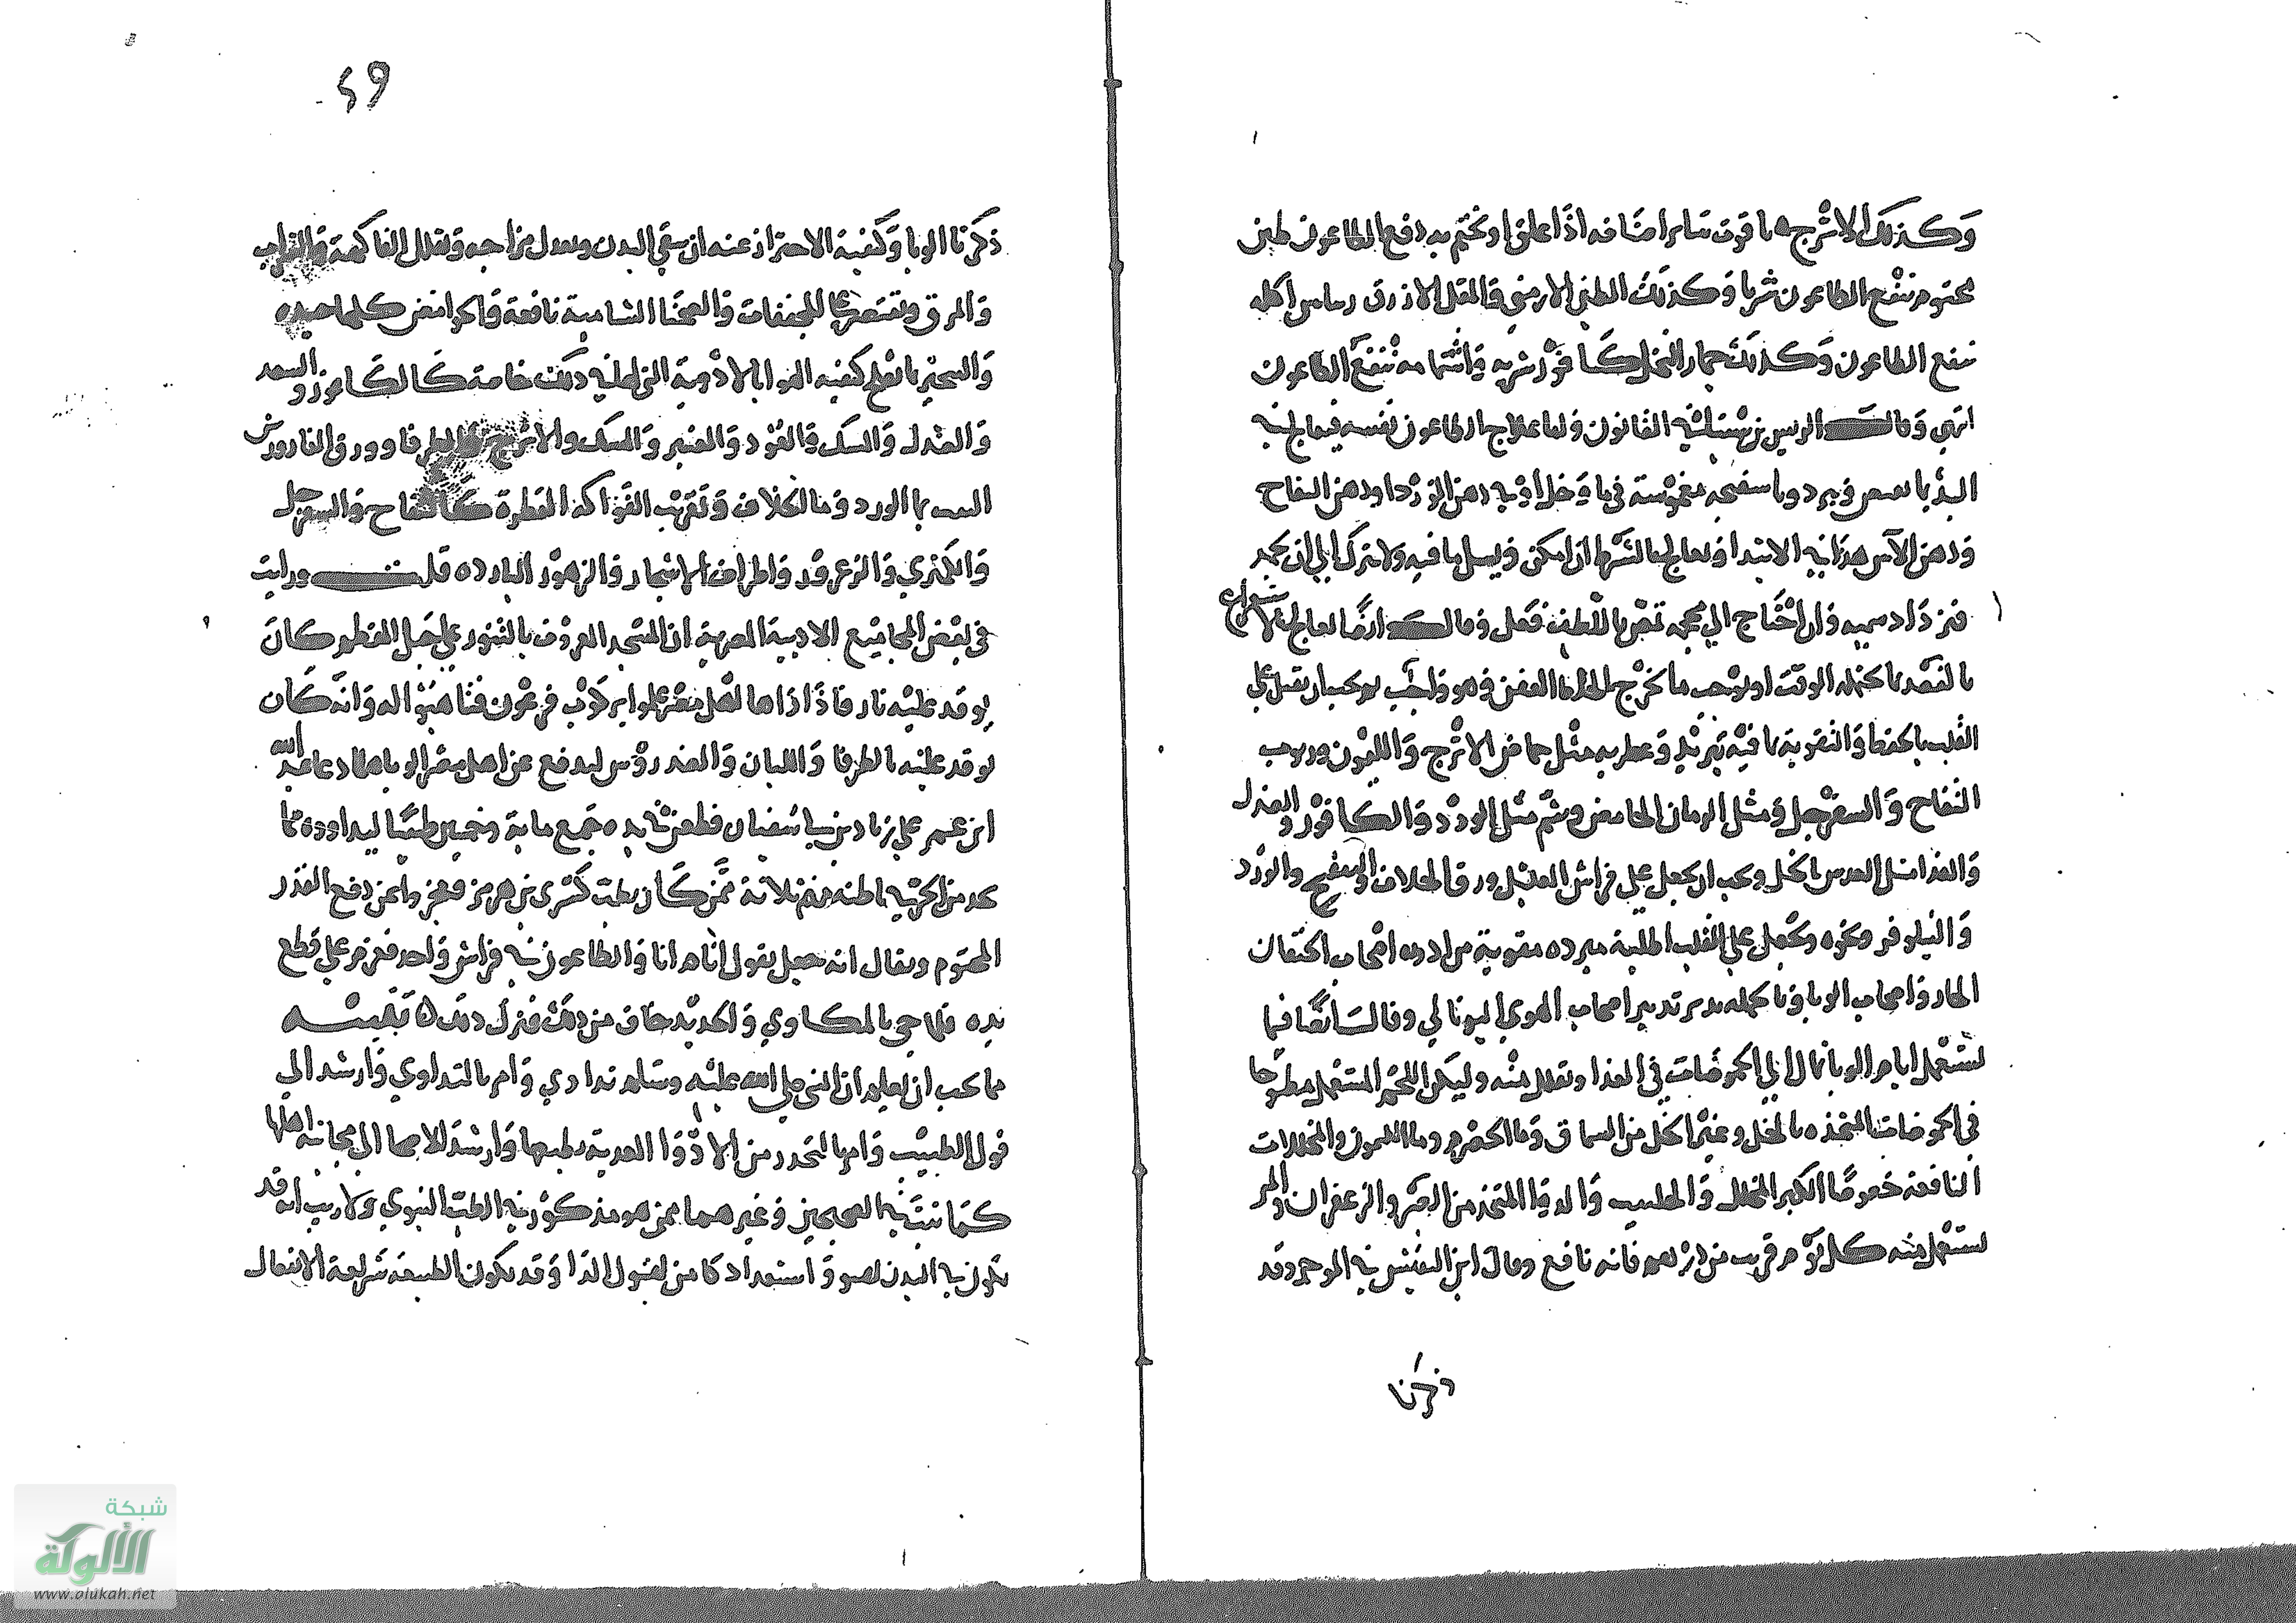 وكذلك الاترجه ياقوت سائر اصنافه اذا علق او تختم به دفع الطاعون طين
مختوم ينفع الطاعون شربا وكذلك الطين الارمني والمقل الازرق اكله
ينفع الطاعون وكذلك جمار النخل كافور شربه واشتمامه ينفع الطاعون
انتهى وقال الريس بن سينا في القانون ولما علاج الطاعون نفسه فيعالج في
البدء بما يقبض ويبرد وباسفنجه مغموسة في ما وخل او في دهن الورد او دهن التفاح
ودهن الآس هذا في الابتدا ويعالج بالشرط ان امكن ويسيل ما فيه ولا يترك الى ان يجمد
فتزداد سميه وان احتاج الى محجمه تمص باللطف فعل وقال ايضا يعالج الاستفراغ
بالفصد ما يحتمله الوقت او يوجب ما يخرج الخلط العفن فهو واجب ثم يجب ان يقبل على
القلب بالحفظ والتقوية بما فيه تبريد وعطريه مثل حماض الاترج والليمون وربوب
التفاح والسفرجل ومثل الرمان الحامض وشم مثل الورد والكافور والصندل
والغذا مثل العدس بالخل ويجب ان يجعل على فراش العليل ورق الخلاف والبنفسج والورد
والنيلوفر ونحوه ويجعل على القلب اطلية مبرده مقوية من ادوية اصحاب الخفقان
الحار واصحاب الوبا وبالجمله يدبر تدبير اصحاب الهوى الوبائي وقال ايضا فيما
يستعمل ايام الوبا مال الى الحموضات في الغذا وتقلل منه وليكن اللحم المستعمل مطبوخا
في الحموضات المتخذه بالخل وغير الخل من السماق وما الحصرم وما الليمون والمخللات
النافعة خصوصا الكبر المخلل والحلتيت والدوا المتخذ من الصبر والزعفران والمر
يستعمل منه كل يوم قريب من درهم فانه نافع وقال ابن النفيس في الموجز وقد
ذكرنا
٢٩
ذكرنا الوبا وكيفية الاحتراز عنه ان ينقي البدن ويعدل مزاجه وتقلل الفاكهة والشراب
والمرق ويقتصر على المجففات والصحنا الشامية نافعة والحوامض كلها جيده
والتبخير بما يصلح كيفيه الهوا بالادوية التي لها في ذلك خاصة كالكافور والسعد
والصندل والسك والعود والعنبر والمسك والاترج والطرفا وورق الغار ورش
البيت بما الورد وما الخلاف وتقريب الفواكه العطرة كالتفاح والسفرجل
والكمثري والزعرور واطراف الاشجار والزهور البارده قلت ورايت
في بعض المجاميع الادبية المصرية ان المسجد المعروف بالتنور على جبل المقطم كان
يوقد عليه نار فاذا راها اهل مصر علموا بركوب فرعون فتاهبوا له وانه كان
يوقد عليه بالطرفا واللبان والصندروس ليدفع عن اهل مصر الوبا دعا عبد الله
ابن عمر على زياد بن ابي سفيان فطعن في يده فجمع ماية وخمسين طبيبا ليداووه مما
يجد من الحر في باطنه منهم ثلاثة ممن كان يطب كسرى بن هرمز فعجزوا عن دفع القدر
المحتوم ويقال انه جعل يقول انام انا والطاعون في فراش واحد فعزم على قطع
يده فلما جي بالمكاوي والحديد خاف من ذلك فترك ذلك ه تنبيه
مما يجب ان يعلم ان النبي صلى الله عليه وسلم تداوي وامر بالتداوي وارشد الى
قول الطبيب وامر بالتحدر من الادوا المعدية بطبعها وارشد الاصحا الى مجانبة اهلها
كما ثبت في الصحيحين وغيرهما ممن هو مذكور في الطب النبوي ولا ريب انه قد
يكون في البدن تهيو واستعداد كامن لقبول الدا وقد تكون الطبيعة سريعة الانفعال
شبكة
الألوكة
www.alukah.net